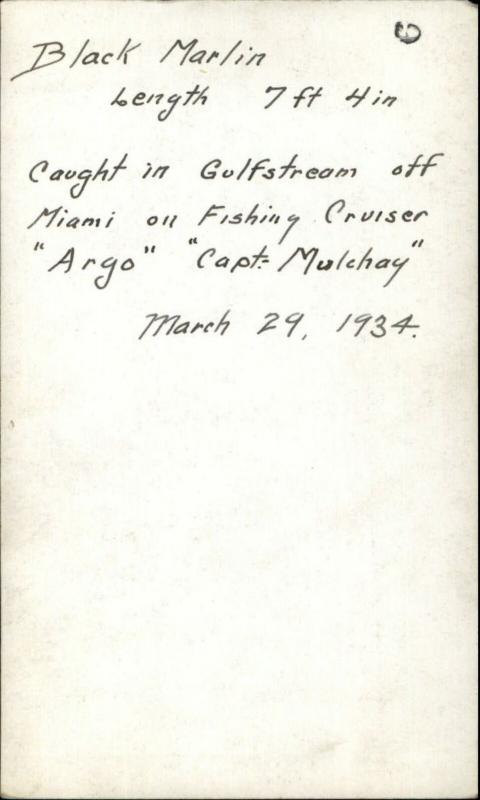 Black Marlin
Length 7 ft 4 in
Caught in Gulfstream off
Miami on Fishing Cruiser
"Argo" "Capt. Mulchay"
March 29, 1934.